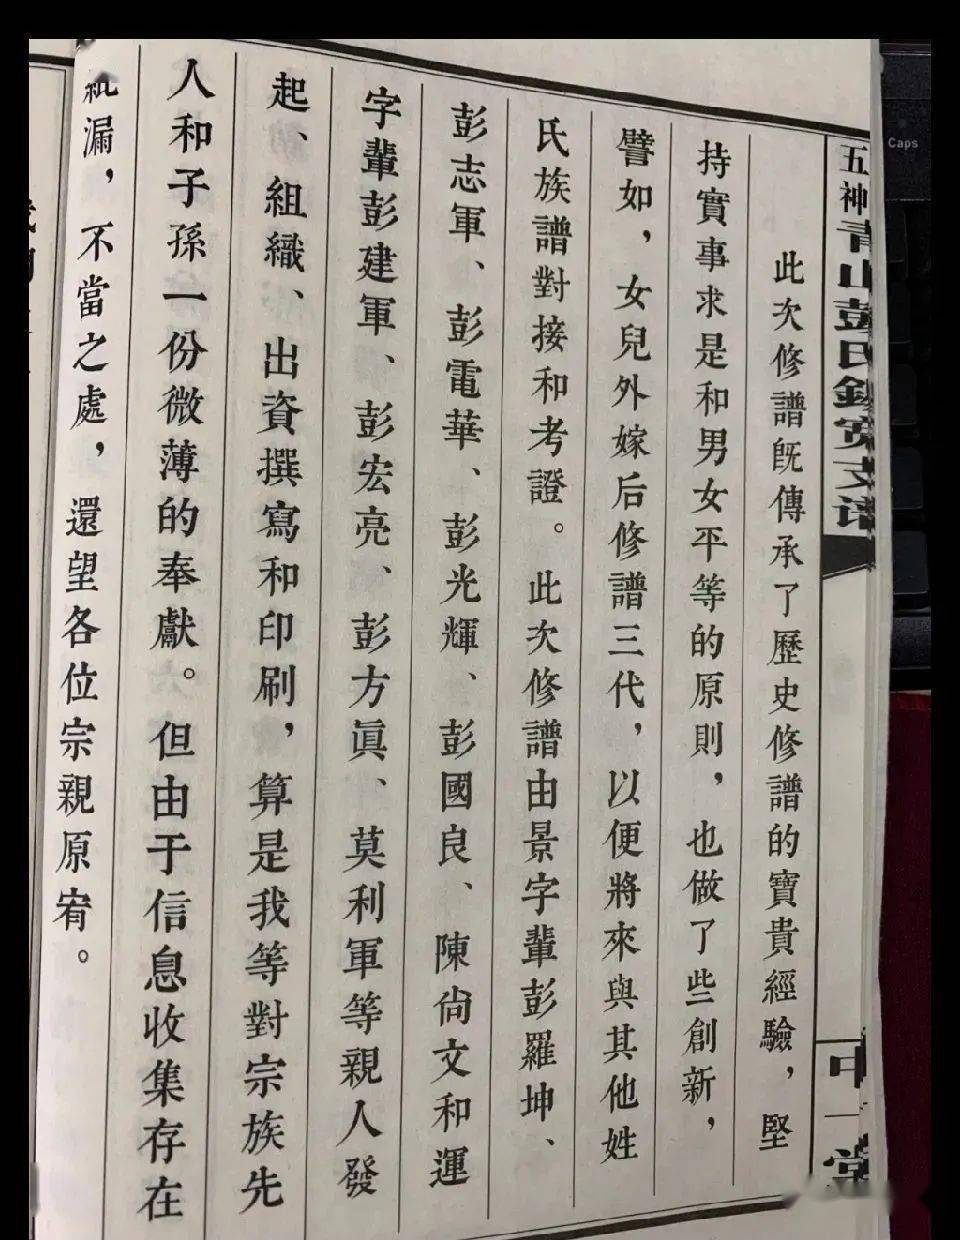 五神青山彭氏錦寬支譜
此次修譜既傳承了歷史修譜的寶貴經驗，堅
持實事求是和男女平等的原則，也做了些創新，
譬如，女兒外嫁后修譜三代，以便將來與其他姓
氏族譜對接和考證。此次修譜由景字輩彭羅坤、
彭志軍、彭電華、彭光輝、彭國良、陳尙文和運
字輩彭建軍、彭宏亮、彭方眞、莫利軍等親人發
起、組織、出資撰寫和印刷，算是我等對宗族先
人和子孫一份微薄的奉獻。但由于信息收集存在
紕漏，不當之處，還望各位宗親原宥。
Caps